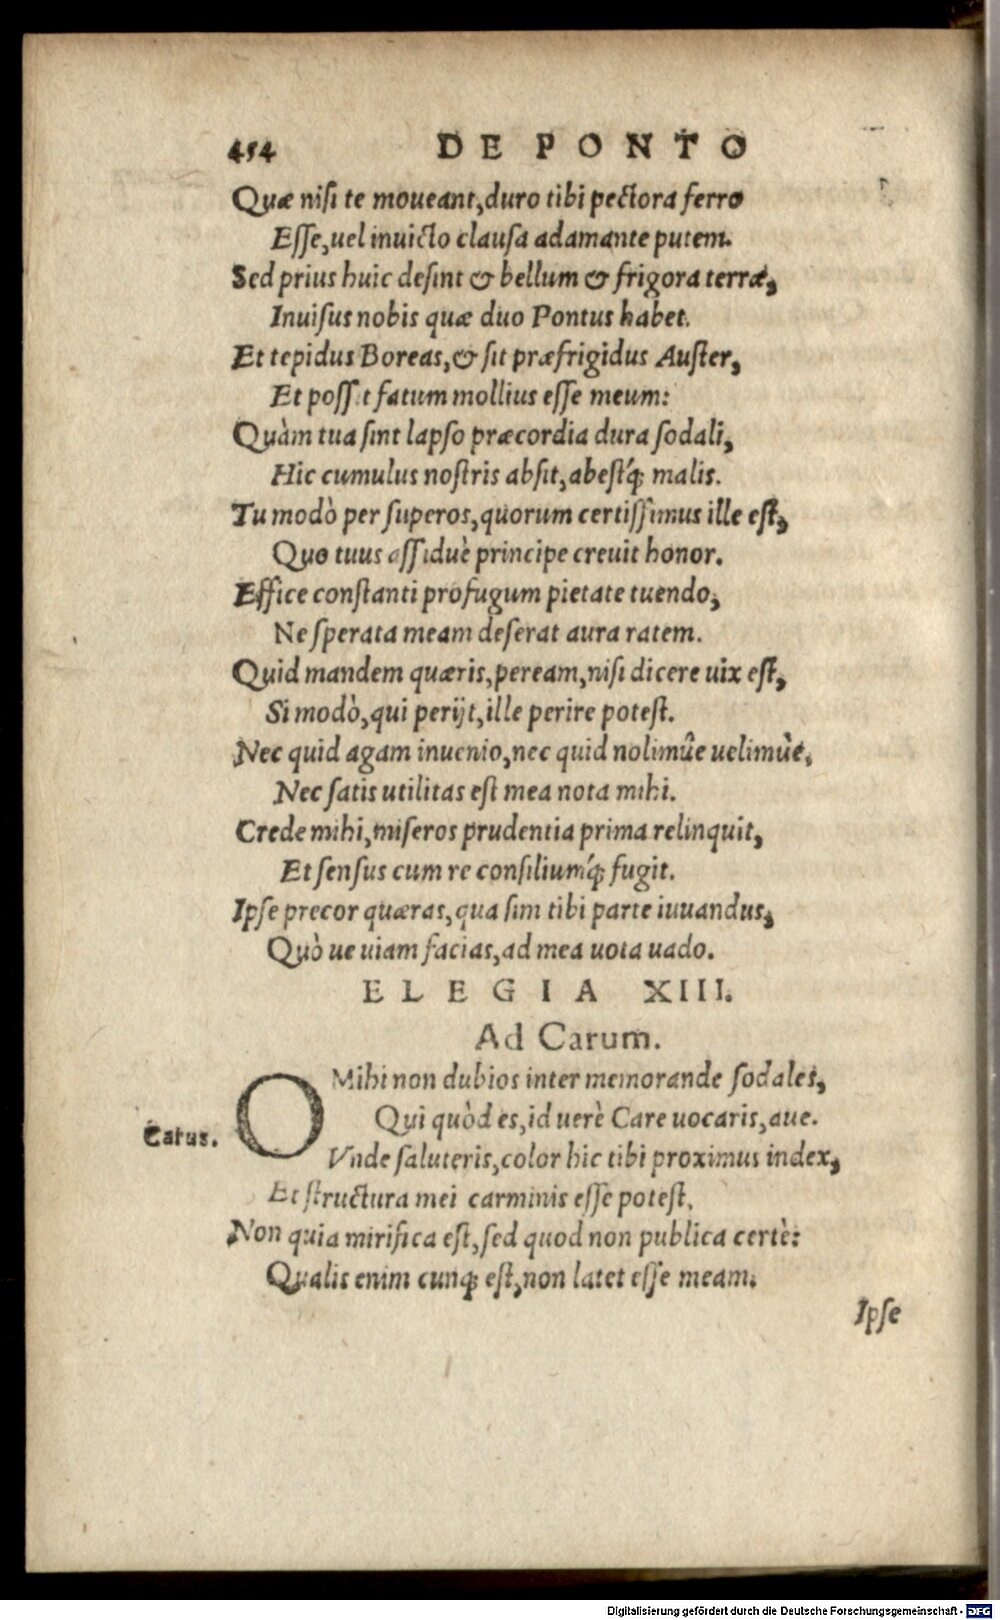 454 DE PONTO
Quæ nisi te moueant, duro tibi pectora ferro
Esse, uel inuicto clausa adamante putem.
Sed prius huic desint & bellum & frigora terræ,
Inuisus nobis quæ duo Pontus habet.
Et tepidus Boreas, & sit præfrigidus Auster,
Et possit fatum mollius esse meum:
Quàm tua sint lapso præcordia dura sodali,
Hic cumulus nostris absit, abestq́; malis.
Tu modò per superos, quorum certissimus ille est,
Quo tuus assiduè principe creuit honor.
Effice constanti profugum pietate tuendo,
Ne sperata meam deserat aura ratem.
Quid mandem quæris, peream, nisi dicere uix est,
Si modò, qui perijt, ille perire potest.
Nec quid agam inuenio, nec quid nolimûe uelimûe,
Nec satis utilitas est mea nota mihi.
Crede mihi, miseros prudentia prima relinquit,
Et sensus cum re consiliumq́; fugit.
Ipse precor quæras, qua sim tibi parte iuuandus,
Quò ue uiam facias, ad mea uota uado.
ELEGIA XIII.
Ad Carum.
O Mihi non dubios inter memorande sodales,
Qui quòd es, id uerè Care uocaris, aue.
Carus.
Vnde saluteris, color hic tibi proximus index,
Et structura mei carminis esse potest.
Non quia mirifica est, sed quod non publica certè:
Qualis enim cunq; est, non latet esse meam.
Ipse
Digitalisierung gefördert durch die Deutsche Forschungsgemeinschaft - DFG